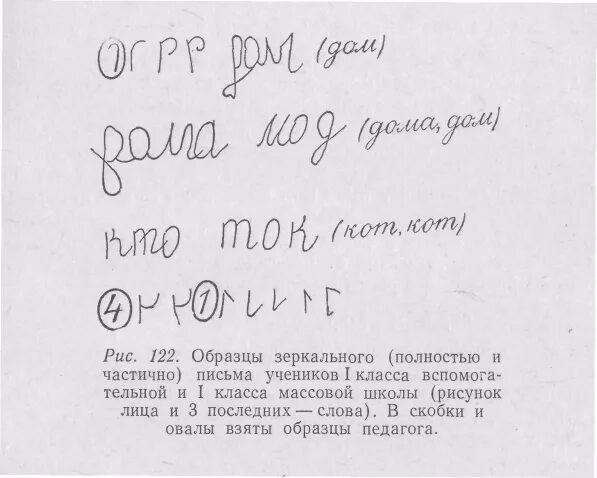 ① Г Р Р ром (дом)
рома мод (дома, дом)
кто ток (кот, кот)
④ ①
Рис. 122. Образцы зеркального (полностью и
частично) письма учеников I класса вспомога-
тельной и I класса массовой школы (рисунок
лица и 3 последних — слова). В скобки и
овалы взяты образцы педагога.